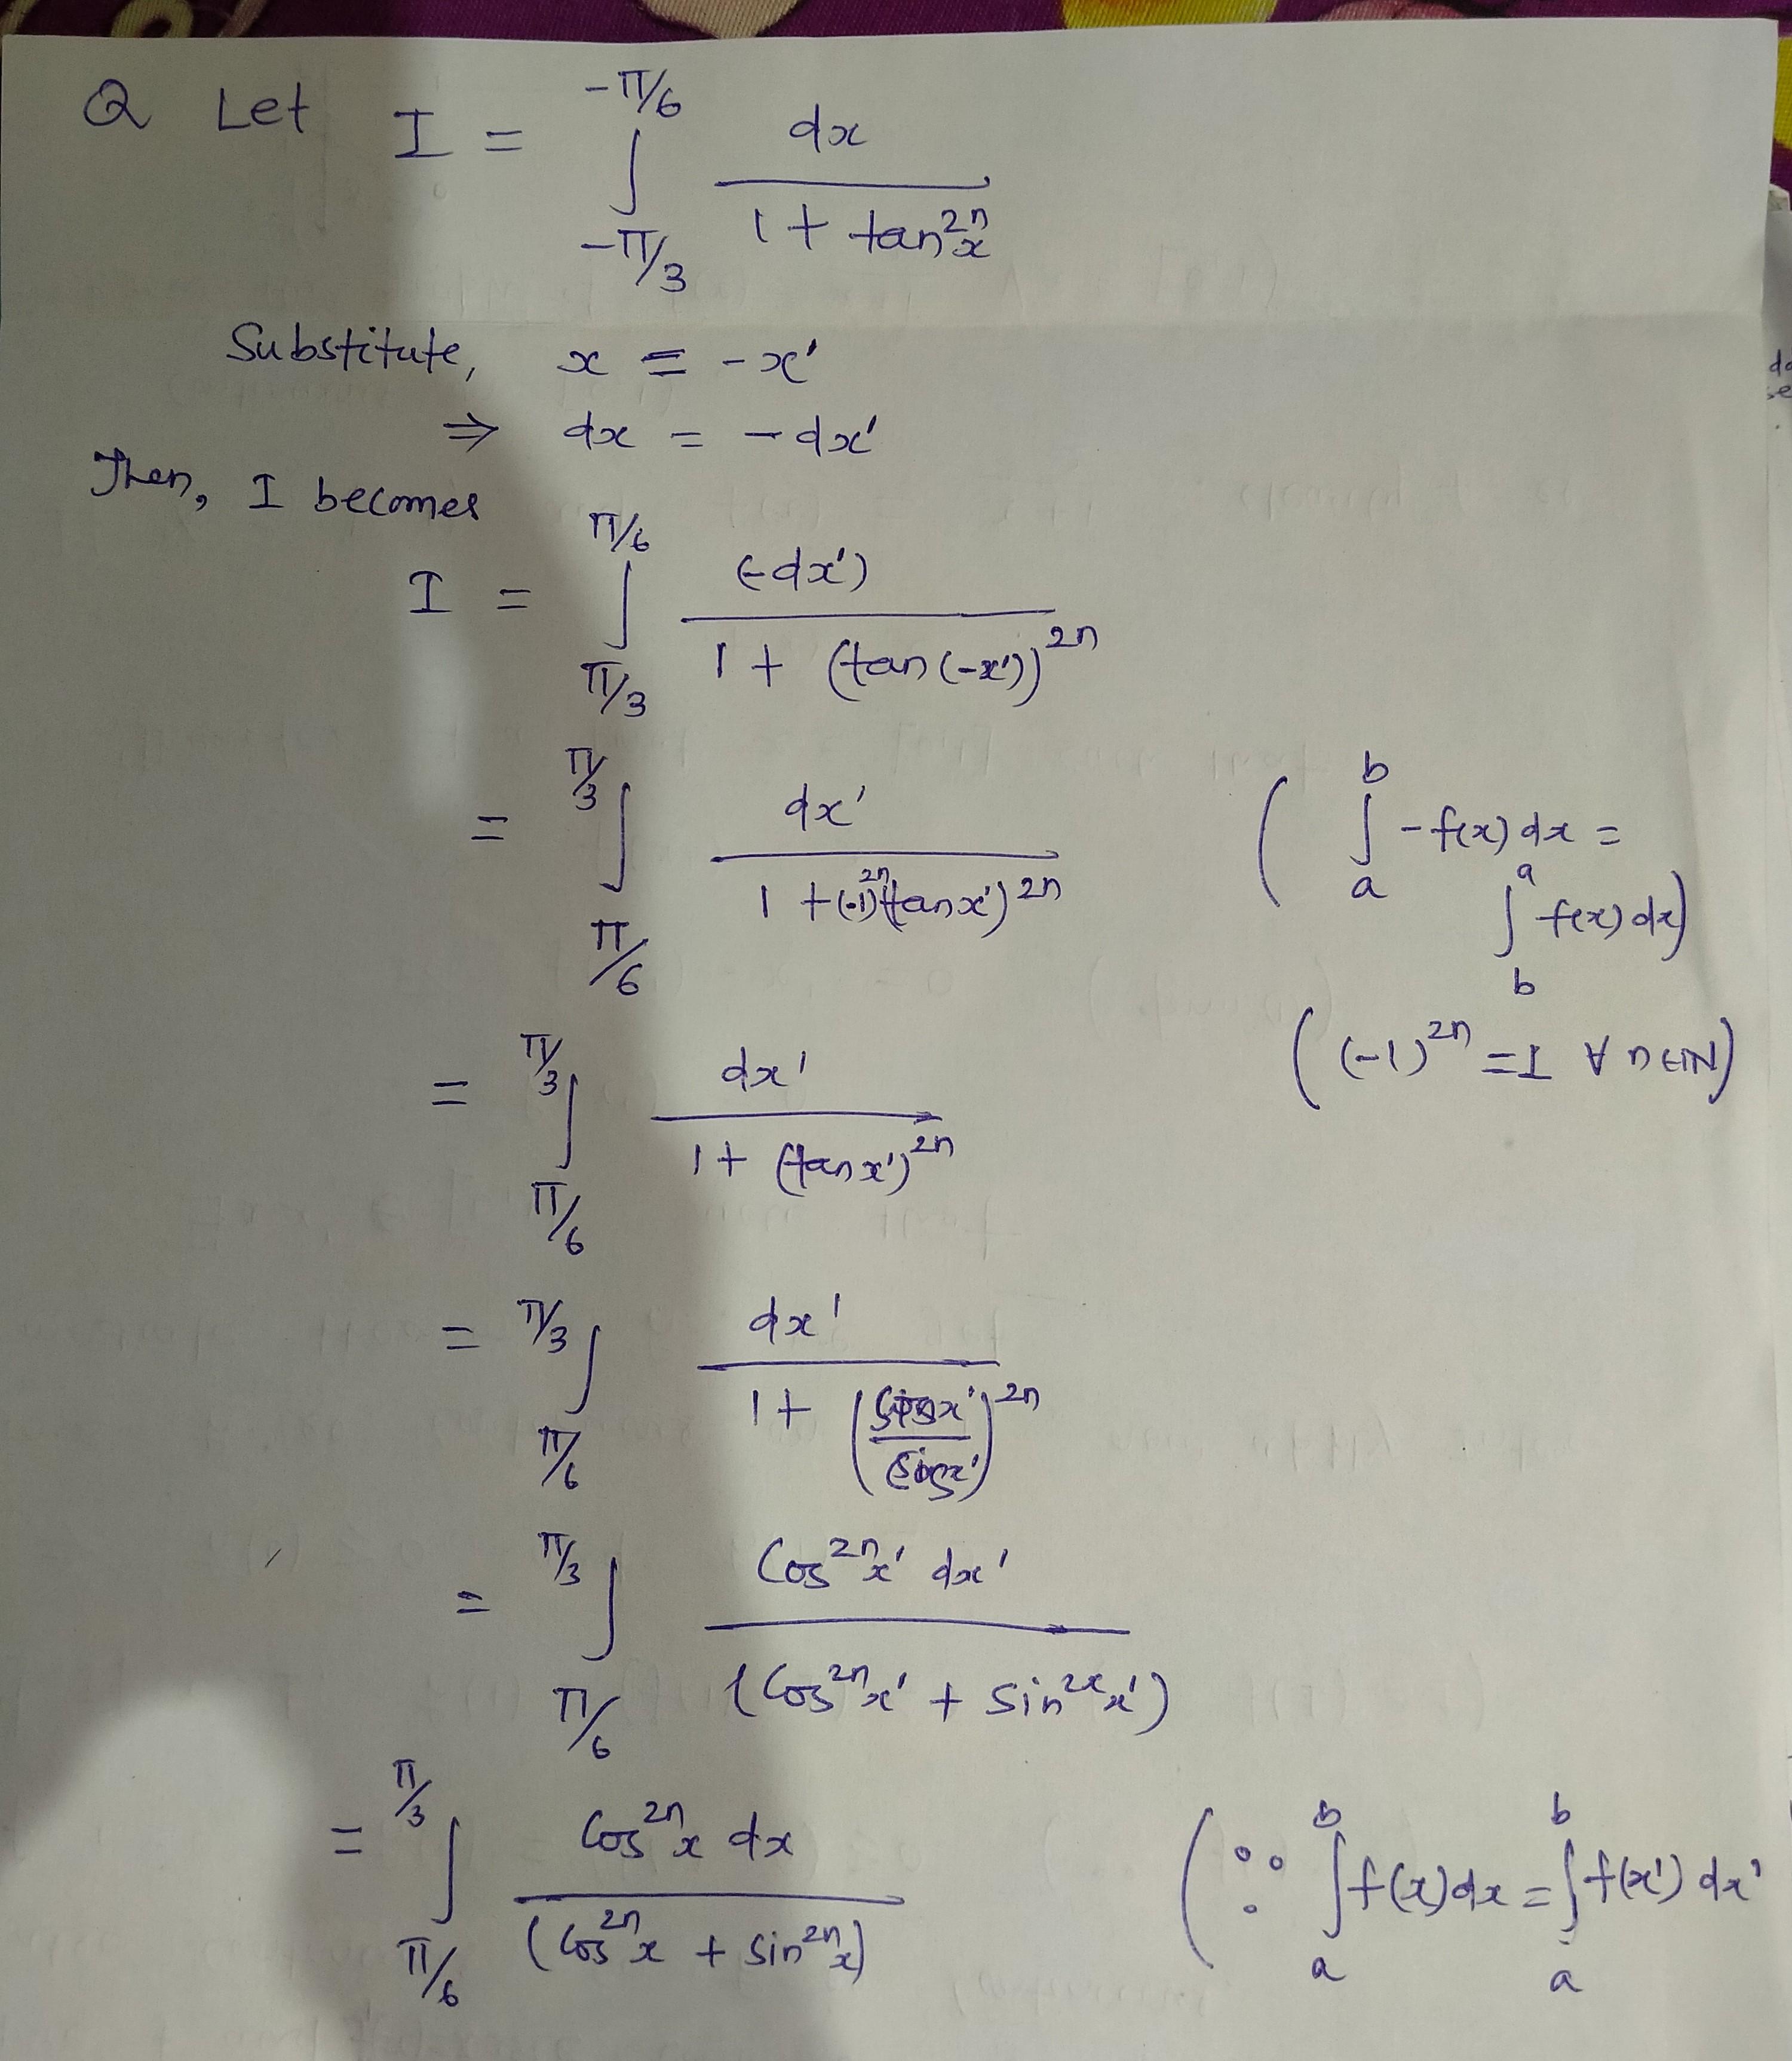 Q Let I = ∫_{-π/3}^{-π/6} dx / (1 + tan^{2n}x)
Substitute, x = -x'
⇒ dx = -dx'
Then, I becomes
I = ∫_{π/3}^{π/6} (-dx') / (1 + (tan(-x'))^{2n})
= ∫_{π/6}^{π/3} dx' / (1 + (-1)^{2n}(tanx')^{2n}) ( ∫_{a}^{b} -f(x) dx = ∫_{b}^{a} f(x) dx)
= ∫_{π/6}^{π/3} dx' / (1 + (tanx')^{2n}) ( (-1)^{2n} = 1 ∀ n∈IN)
= ∫_{π/6}^{π/3} dx' / (1 + ( / )^{2n})
= ∫_{π/6}^{π/3} Cos^{2n}x' dx' / (Cos^{2n}x' + sin^{2x}x')
= ∫_{π/6}^{π/3} Cos^{2n}x dx / (Cos^{2n}x + sin^{2n}x) ( ∵ ∫_{a}^{b} f(x)dx = ∫_{a}^{b} f(x') dx'